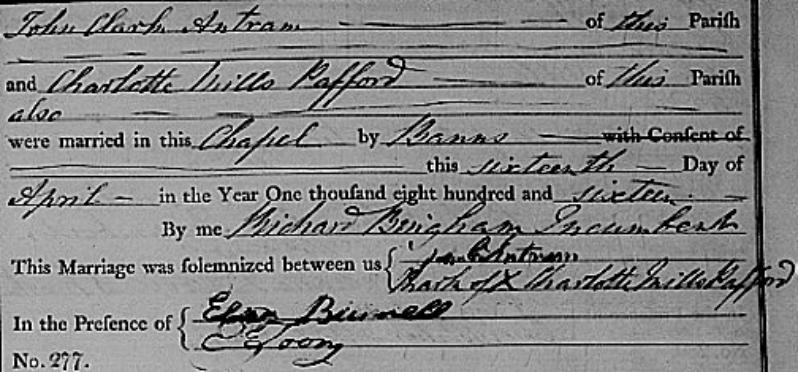 John Clark Antram of this Parish
and Charlotte Mills Pafford of this Parish
also
were married in this Chapel by Banns with Consent of
this sixteenth Day of
April in the Year One thousand eight hundred and sixteen.
By me Richard Bingham Incumbent
This Marriage was solemnized between us { Jno C Antram
Mark of X Charlotte Mills Pafford
In the Presence of {
No. 277.